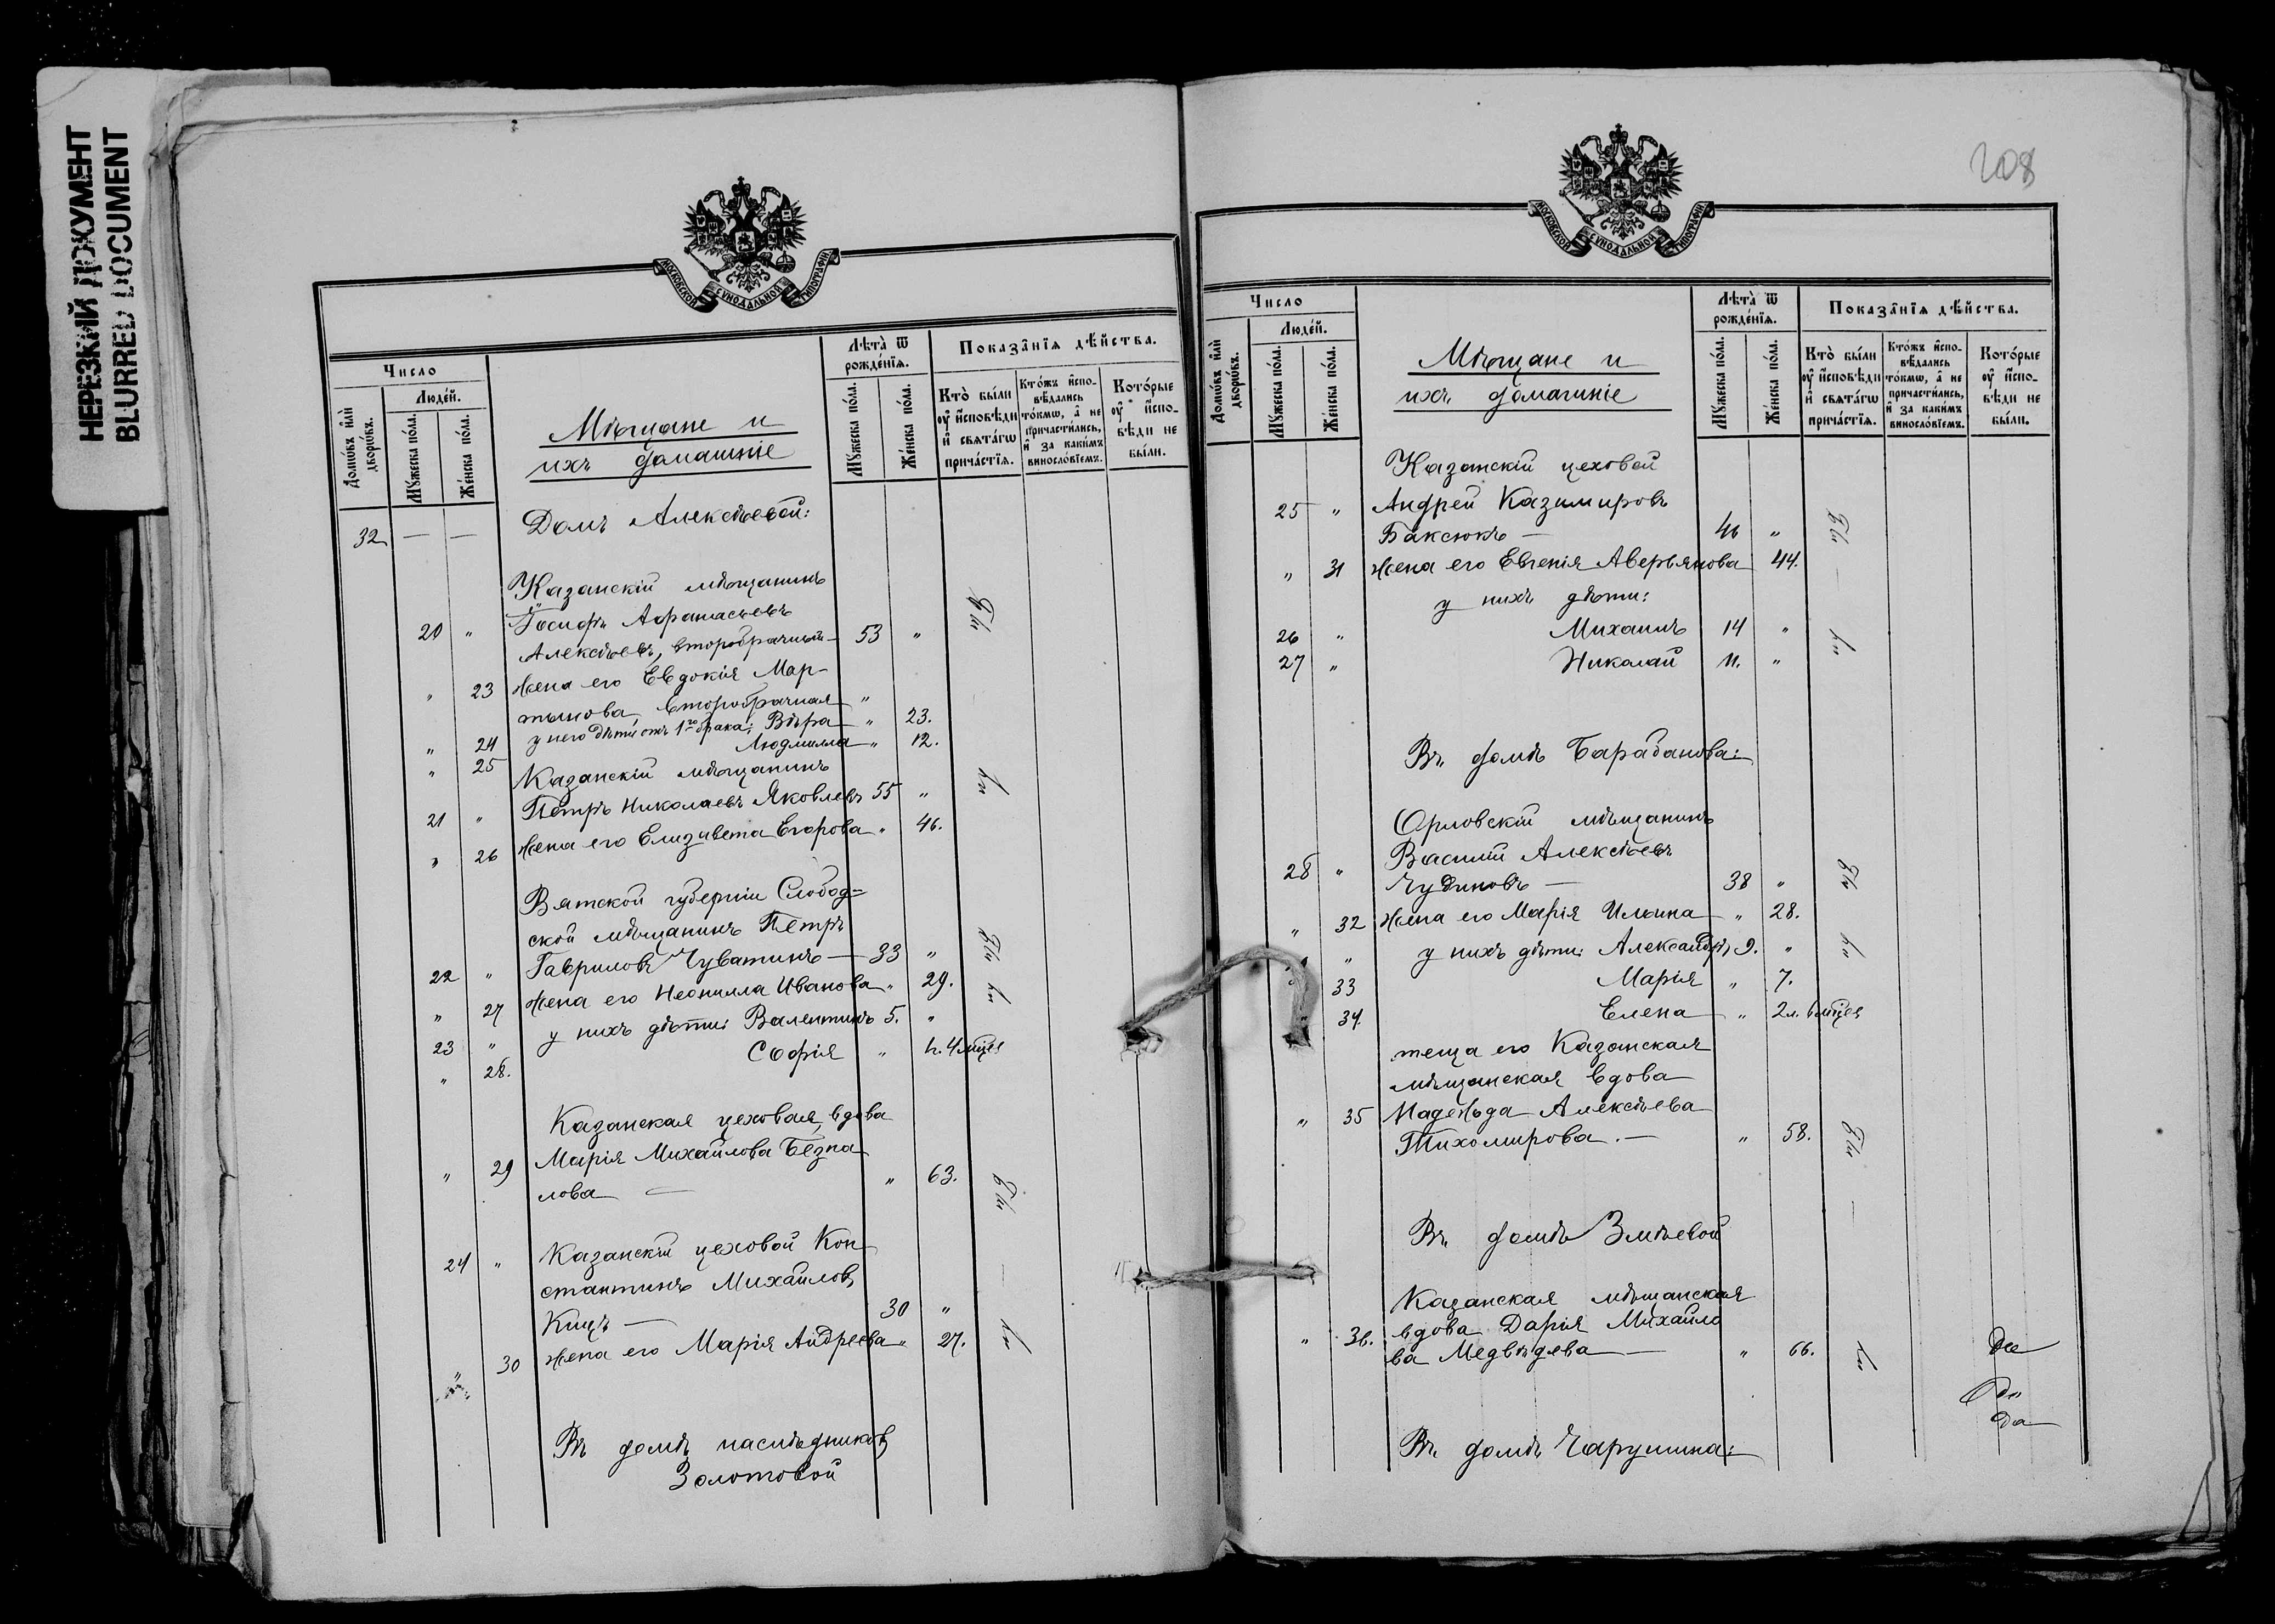 НЕРЕЗКИЙ ДОКУМЕНТ
BLURRED DOCUMENT
МОСКОВСКОЙ СѴНОДАЛЬНОЙ ТИПОГРАФІИ
Число
Людей.
Домѡвъ или дворѡвъ.
Мꙋжеска пола.
Женска пола.
Мѣщане и
ихъ домашніе
Лѣта ѿ рожденїѧ.
Мꙋжеска пола.
Женска пола.
Показанїѧ дѣйства.
Кто были оу исповѣди и свѧтагѡ причастїѧ.
Ктожъ исповѣдались токмѡ, а не причастились, и за какимъ винословїемъ.
Которые оу исповѣди не были.
32 — — Домъ Алексѣевой:
Казанскій мѣщанинъ
20 " Іосифъ Афанасьевъ
Алексѣевъ, второбрачный 53 "
" 23 жена его Евдокія Мар-
тынова, второбрачная "
" 24 у него дѣти отъ 1го брака: Вѣра " 23.
" 25 Людмилла " 12.
Казанскій мѣщанинъ
21 " Петръ Николаевъ Яковлевъ 55 "
" 26 жена его Елизавета Егорова " 46.
Вятской губерніи Слобод=
ской мѣщанинъ Петръ
22 " Гавриловъ Чуватинъ — 33 "
" 27 жена его Неонилла Иванова " 29.
23 " у нихъ дѣти: Валентинъ 5. "
" 28. Софія " 4 мѣсяц
Казанская цеховая вдова
" 29 Марія Михайлова Безпа
лова — " 63.
24 " Казанскій цеховой Кон
стантинъ Михайловъ
Кицъ — 30 "
" 30 жена его Марія Андреева " 27.
Въ домѣ наслѣдниковъ
Золотовой
208
МОСКОВСКОЙ СѴНОДАЛЬНОЙ ТИПОГРАФІИ
Число
Людей.
Домѡвъ или дворѡвъ.
Мꙋжеска пола.
Женска пола.
Мѣщане и
ихъ домашніе
Лѣта ѿ рожденїѧ.
Мꙋжеска пола.
Женска пола.
Показанїѧ дѣйства.
Кто были оу исповѣди и свѧтагѡ причастїѧ.
Ктожъ исповѣдались токмѡ, а не причастились, и за какимъ винословїемъ.
Которые оу исповѣди не были.
Казанскій цеховой
25 " Андрей Казимировъ
Баксюкъ — 46 "
" 31 жена его Евгенія Аверьянова 44.
у нихъ дѣти:
26 " Михаилъ 14 "
27 " Николай 11. "
Въ домѣ Барабанова:
Орловскій мѣщанинъ
28 " Василій Алексѣевъ
Чудиновъ — 38 "
" 32 жена его Марія Ильина " 28.
" у нихъ дѣти: Александръ 9. "
33 Марія " 7.
34. Елена " 2 л. 6 мѣсяц
теща его Казанская
мѣщанская вдова
" 35 Надежда Алексѣева
Тихомирова. — " 58.
Въ домѣ Змѣевой
Казанская мѣщанская
" 36. вдова Дарія Михайло
ва Медвѣдева — " 66.
Въ домѣ Чарушина: